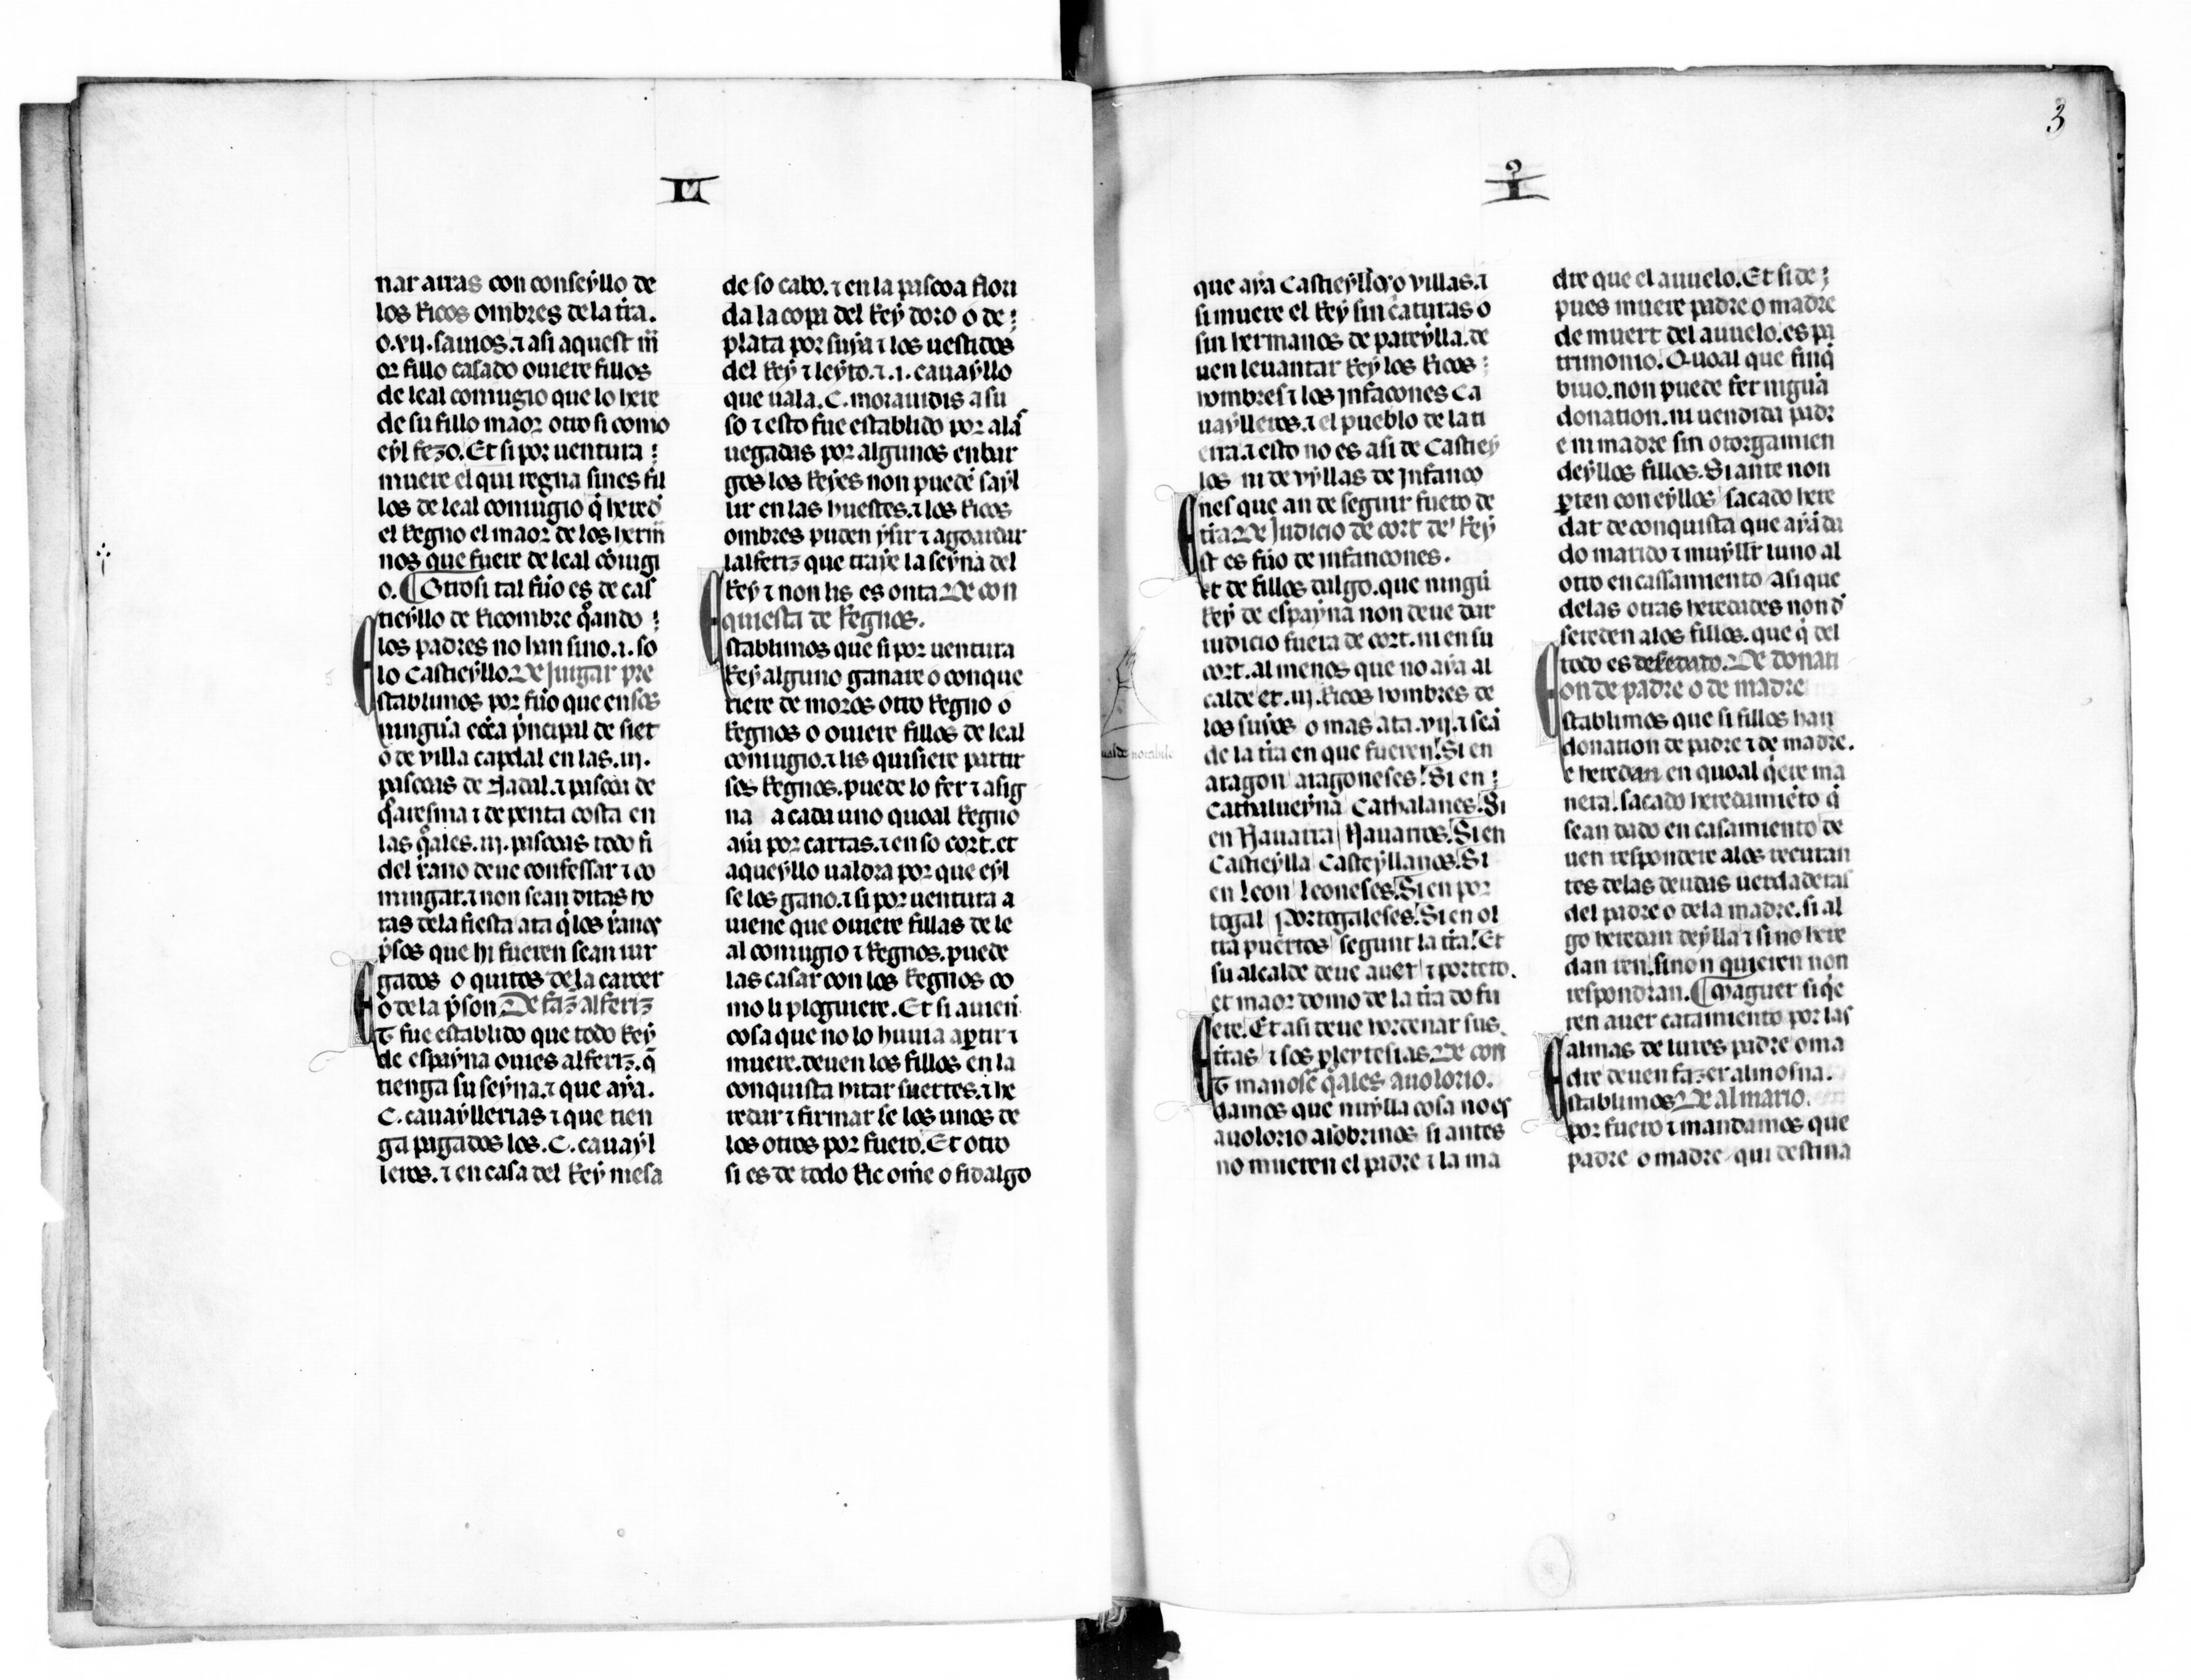 LI
nar arras con conseyllo de
los Ricos ombres de la tr̃a.
o. xij. sauios. ⁊ asi aquest m̃
or fillo casado ouiere fillos
de leal coniugio que lo here
de su fillo maor otro si como
eyl fezo. Et si por uentura
muere el qui regna sines fil
los de leal coniugio q̃ hered̃
el Regno el maor de los herm̃
nos que fuere de leal cõiugi
o. ¶ Otrosi tal fuo es de cas
tieyllo de Ricombre q̃ando
los padres no han sino .i. so
lo Castieyllo. De Jurgar pre
stablimos por fuo que en sos
ningũa ecc̃a p̃ncipal de siet
o de villa capdal en las .iij.
pascoas de Nadal. ⁊ pascoa de
q̃resma ⁊ de penta costa en
las q̃ales .iij. pascoas todo fi
del xr̃ano deue confessar ⁊ co
mingar. ⁊ non sean ditas ho
ras dela fiesta ata q̃ los xr̃anos
p̃sos que hi fueren sean iur
gados o quitos dela carcer
o de la p̃son De faz̃ alferiz
Et fue establido que todo Rey
de espayna ouies alferiz. q̃
tienga su seyna. ⁊ que aya.
C. cauayllerias ⁊ que tien
ga pagados los .C. cauayl
leros. ⁊ en casa del Rey mesa
de so cabo. ⁊ en la pascoa flori
da la copa del Rey doro o de
plata por suya ⁊ los uestidos
del Rey ⁊ leyto. ⁊ .i. cauayllo
que uala .C. morauidis a su
so ⁊ esto fue establido por alãs
uegadas por algunos enbar
gos los Reyes non puedẽ sayl
lir en las huestes. ⁊ los Ricos
ombres puden ysir ⁊ agoardar
lalferiz que traye la seyna del
Rey ⁊ non lis es onta De con
quiesta de Regnos.
Establimos que si por uentura
Rey alguno ganare o conque
riere de moros otro Regno o
Regnos o ouiere fillos de leal
coniugio. ⁊ lis quisiere partir
sos Regnos. puede lo fer ⁊ asig
na a cada uno quoal Regno
aya por cartas. ⁊ en so cort. et
aqueyllo ualdra por que eyl
se los gano. ⁊ si por uentura a
uiene que ouiere fillas de le
al coniugio ⁊ Regnos. puede
las casar con los Regnos co
mo li ploguiere. Et si auieñ
cosa que no lo huuia apartir ⁊
muere. deuen los fillos en la
conquista hitar suertes. ⁊ he
redar ⁊ firmar se los unos de
los otros por fuero. Et otro
si es de todo Ric om̃e o fidalgo
I
3
que aya Castieyllos o villas. ⁊
si muere el Rey sin c̃aturas o
sin hermanos de pareylla. de
uen leuantar Rey los Ricos
nombres ⁊ los Infacones Ca
uaylleros. ⁊ el pueblo de la ti
erra. ⁊ esto no es asi de Castiey
los ni de vyllas de Infanço
nes que an de seguir fuero de
tr̃a De Judicio de cort de Rey
Est es fuo de infancones.
Et de fillos dalgo. que ningũ
Rey de espayna non deue dar
iudicio fuera de cort. ni en su
cort. al menos que no aya al
calde et .iij. Ricos hombres de
los suyos o mas ata .vij. ⁊ seã
de la tr̃a en que fueren. Si en
aragon aragoneses. Si en
Cathalueyna Cathalanes. Si
en Nauarra Nauarros. Si en
Castieylla Casteyllanos. Si
en Leon Leoneses. Si en por
togal Portogaleses. Si en ol
tra puertos segunt la tr̃a. Et
su alcalde deue auer ⁊ portero.
et maor domo de la tr̃a do fu
ere. Et asi deue hordenar sus
r̃tas ⁊ sos pleytesias. De con
Et manosc̃ q̃ales auolorio.
damos que nuylla cosa no es
auolorio a sobrinos si antes
no mueren el padre ⁊ la ma
dre que el auuelo. Et si de
pues muere padre o madre
de muert del auuelo. es pa
trimonio. Quoal que finq̃
biuo. non puede fer nigũa
donation. ni uendida padr
e ni madre sin otorgamien
deyllos fillos. Si ante non
parten con eyllos sacado here
dat de conquista que aya da
do marido ⁊ muyller luno al
otro en cassamiento asi que
delas otras heredades non d̃
sereden alos fillos. que q̃ del
todo es deseredato. De donati
on de padre o de madre
Establimos que si fillos han
donation de padre ⁊ de madre.
e heredan en quoal q̃ere ma
nera. sacado heredamiẽto q̃
sean dado en casamiento de
uen respondere alos recutan
tes delas deudas uerdaderas
del padre o dela madre. si al
go heredan deylla ⁊ si no here
dan ren. sinon quieren non
respondran. ¶ Maguer si q̃e
ren auer catamiento por las
almas de lures padre o ma
dre deuen fazer almosna.
Establimos De almario.
por fuero ⁊ mandamos que
padre o madre qui destina